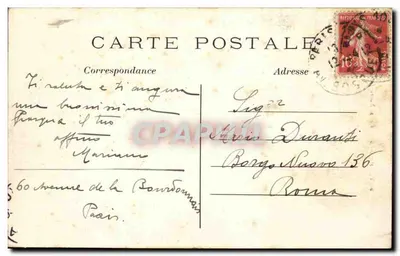 CARTE POSTALE
Correspondance
Adresse
Ti saluta e ti augura
una buonissima
Pasqua il tuo
affmo
Mariano
60 Avenue de la Bourdonnais
Paris
Sigr
Duranti
Borgo Nuovo 136
Roma